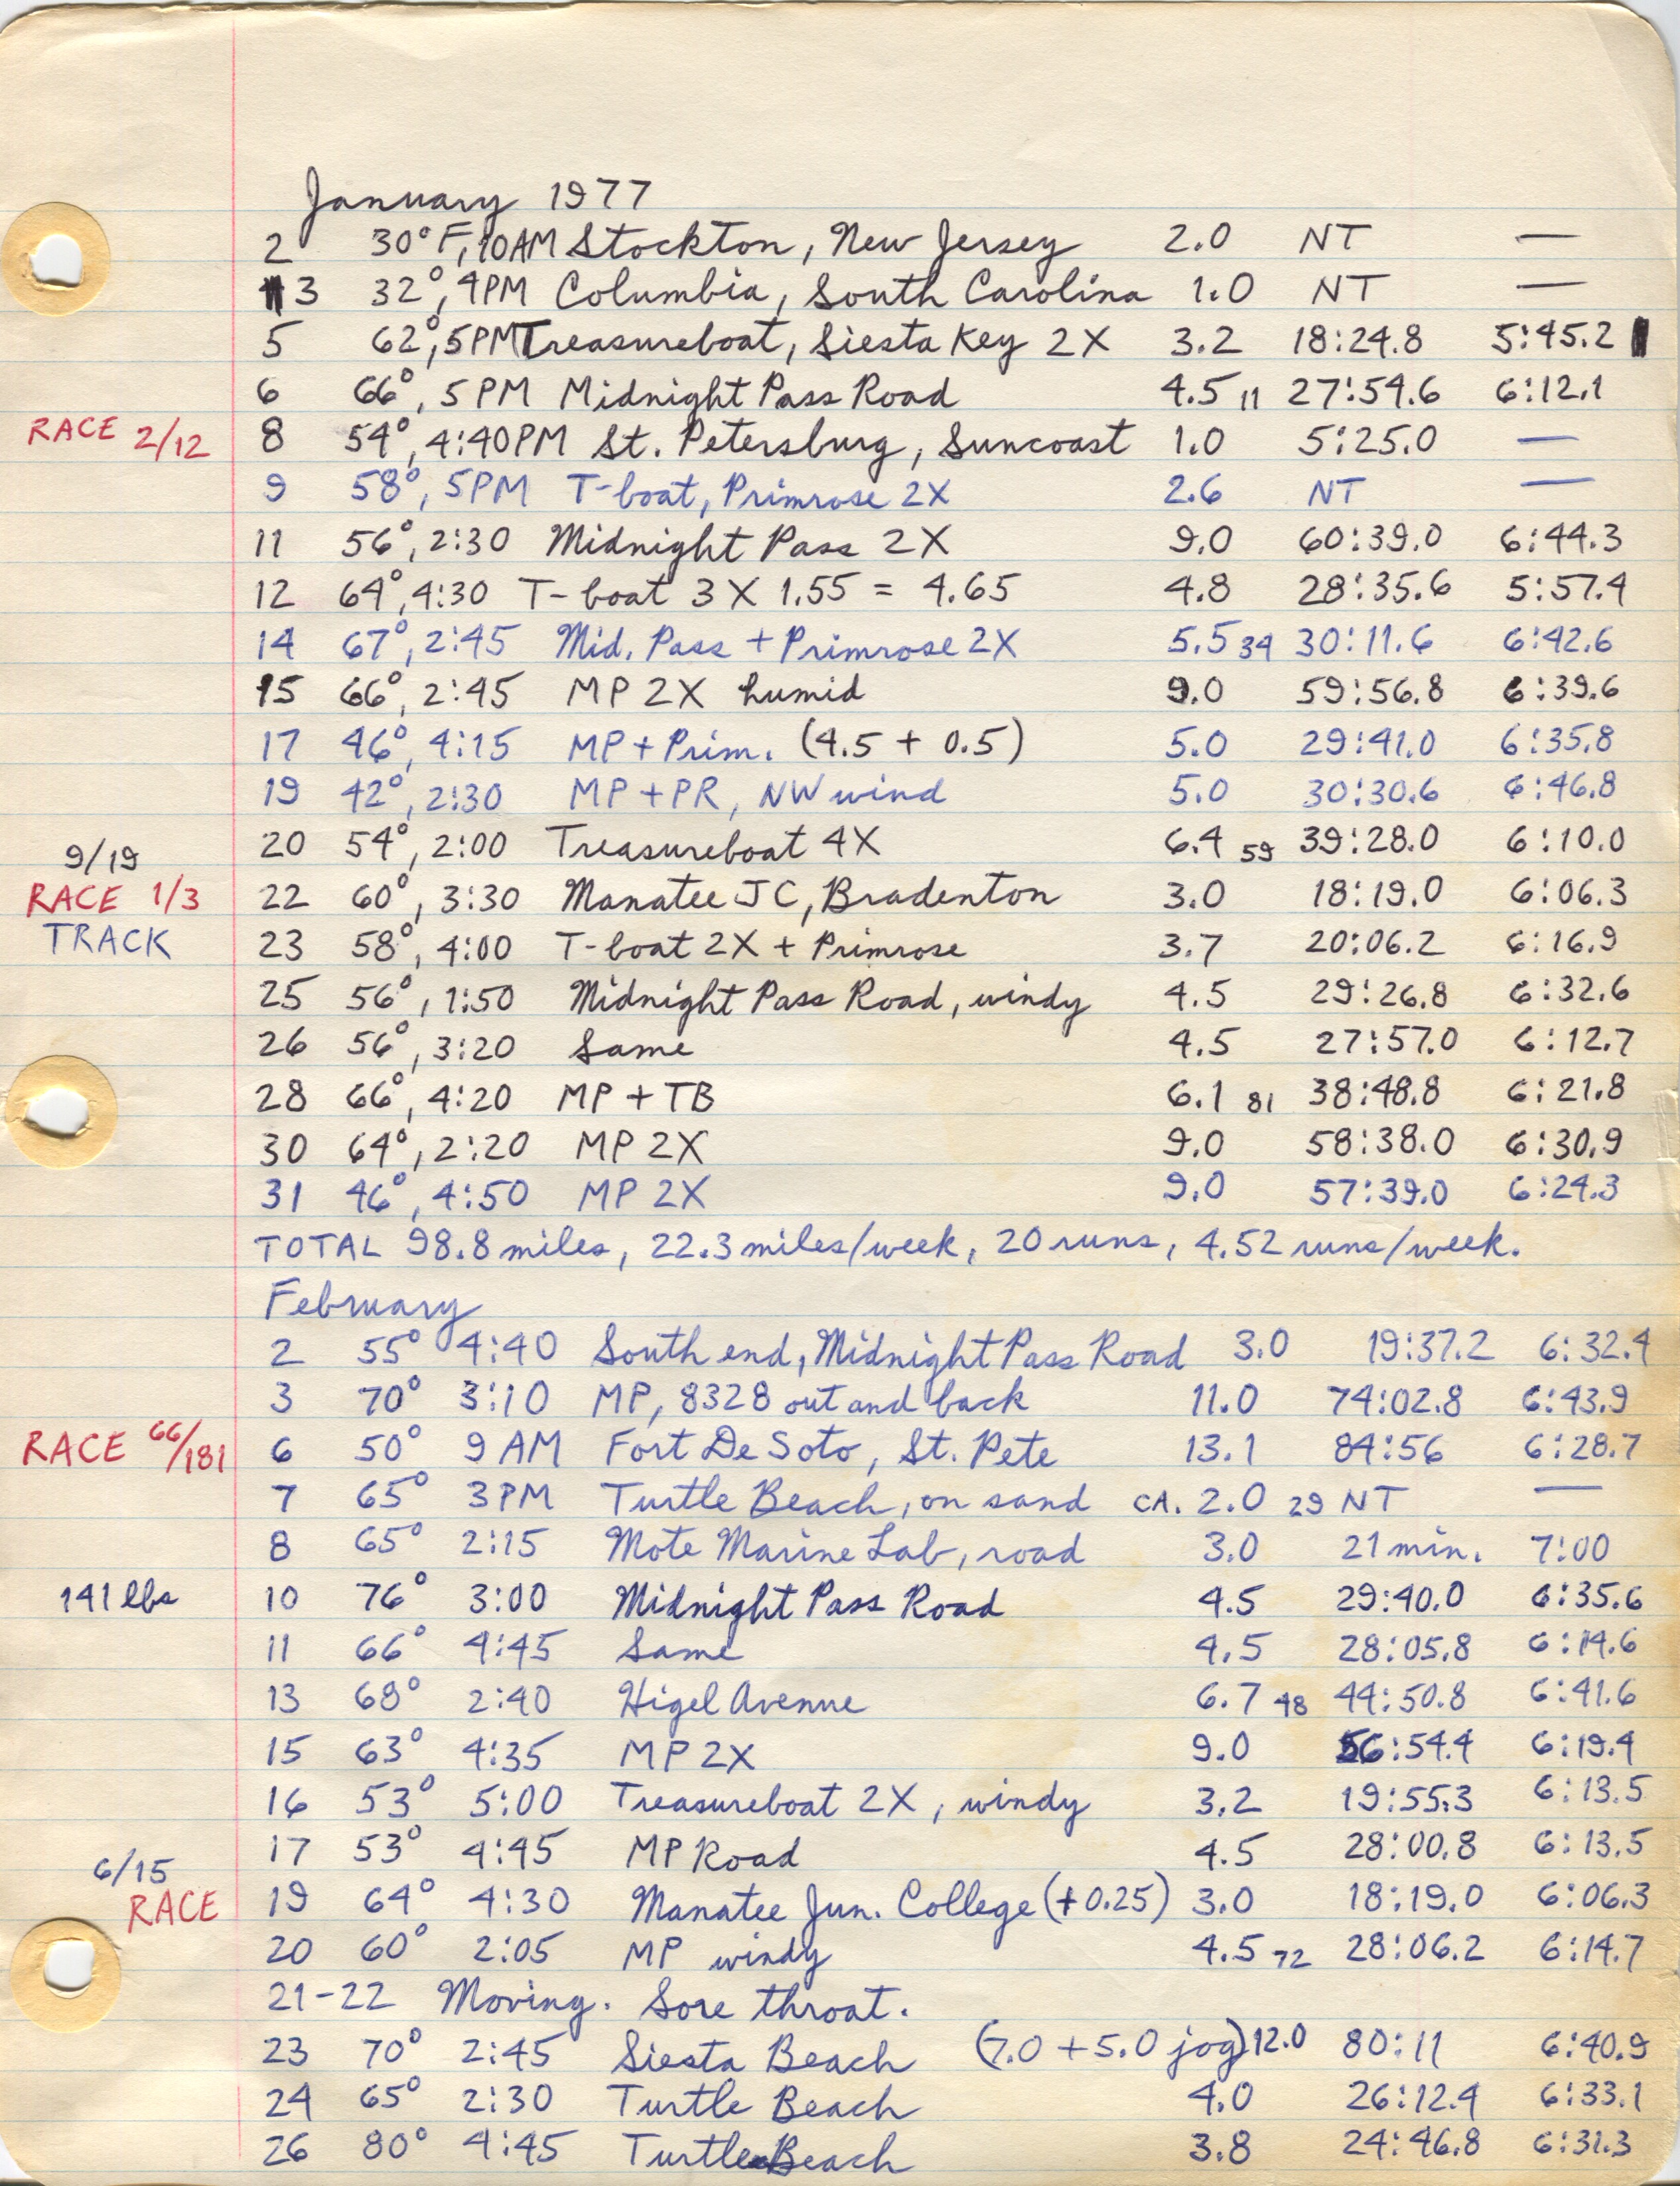 January 1977
2 30° F, 10AM Stockton, New Jersey 2.0 NT —
3 32°, 4PM Columbia, South Carolina 1.0 NT —
5 62°, 5PM Treasureboat, Siesta Key 2X 3.2 18:24.8 5:45.2
6 66°, 5PM Midnight Pass Road 4.5 11 27:54.6 6:12.1
RACE 2/12 8 54°, 4:40PM St. Petersburg, Suncoast 1.0 5:25.0 —
9 58°, 5PM T-boat, Primrose 2X 2.6 NT —
11 56°, 2:30 Midnight Pass 2X 9.0 60:39.0 6:44.3
12 64°, 4:30 T-boat 3 X 1.55 = 4.65 4.8 28:35.6 5:57.4
14 67°, 2:45 Mid. Pass + Primrose 2X 5.5 34 30:11.6 6:42.6
15 66°, 2:45 MP 2X humid 9.0 59:56.8 6:39.6
17 46°, 4:15 MP + Prim. (4.5 + 0.5) 5.0 29:41.0 6:35.8
19 42°, 2:30 MP + PR, NW wind 5.0 30:30.6 6:46.8
20 54°, 2:00 Treasureboat 4X 6.4 59 39:28.0 6:10.0
9/19
RACE 1/3 22 60°, 3:30 Manatee JC, Bradenton 3.0 18:19.0 6:06.3
TRACK 23 58°, 4:00 T-boat 2X + Primrose 3.7 20:06.2 6:16.9
25 56°, 1:50 Midnight Pass Road, windy 4.5 29:26.8 6:32.6
26 56°, 3:20 Same 4.5 27:57.0 6:12.7
28 66°, 4:20 MP + TB 6.1 81 38:48.8 6:21.8
30 64°, 2:20 MP 2X 9.0 58:38.0 6:30.9
31 46°, 4:50 MP 2X 9.0 57:39.0 6:24.3
TOTAL 98.8 miles, 22.3 miles/week, 20 runs, 4.52 runs/week.
February
2 55° 4:40 South end, Midnight Pass Road 3.0 19:37.2 6:32.4
3 70° 3:10 MP, 8328 out and back 11.0 74:02.8 6:43.9
RACE 66/181 6 50° 9 AM Fort De Soto, St. Pete 13.1 84:56 6:28.7
7 65° 3PM Turtle Beach, on sand CA. 2.0 29 NT —
8 65° 2:15 Mote Marine Lab, road 3.0 21 min. 7:00
141 lbs 10 76° 3:00 Midnight Pass Road 4.5 29:40.0 6:35.6
11 66° 4:45 Same 4.5 28:05.8 6:14.6
13 68° 2:40 Higel Avenue 6.7 48 44:50.8 6:41.6
15 63° 4:35 MP 2X 9.0 56:54.4 6:19.4
16 53° 5:00 Treasureboat 2X, windy 3.2 19:55.3 6:13.5
17 53° 4:45 MP Road 4.5 28:00.8 6:13.5
6/15
RACE 19 64° 4:30 Manatee Jun. College (+0.25) 3.0 18:19.0 6:06.3
20 60° 2:05 MP windy 4.5 72 28:06.2 6:14.7
21-22 Moving. Sore throat.
23 70° 2:45 Siesta Beach (7.0 + 5.0 jog) 12.0 80:11 6:40.9
24 65° 2:30 Turtle Beach 4.0 26:12.4 6:33.1
26 80° 4:45 Turtle Beach 3.8 24:46.8 6:31.3